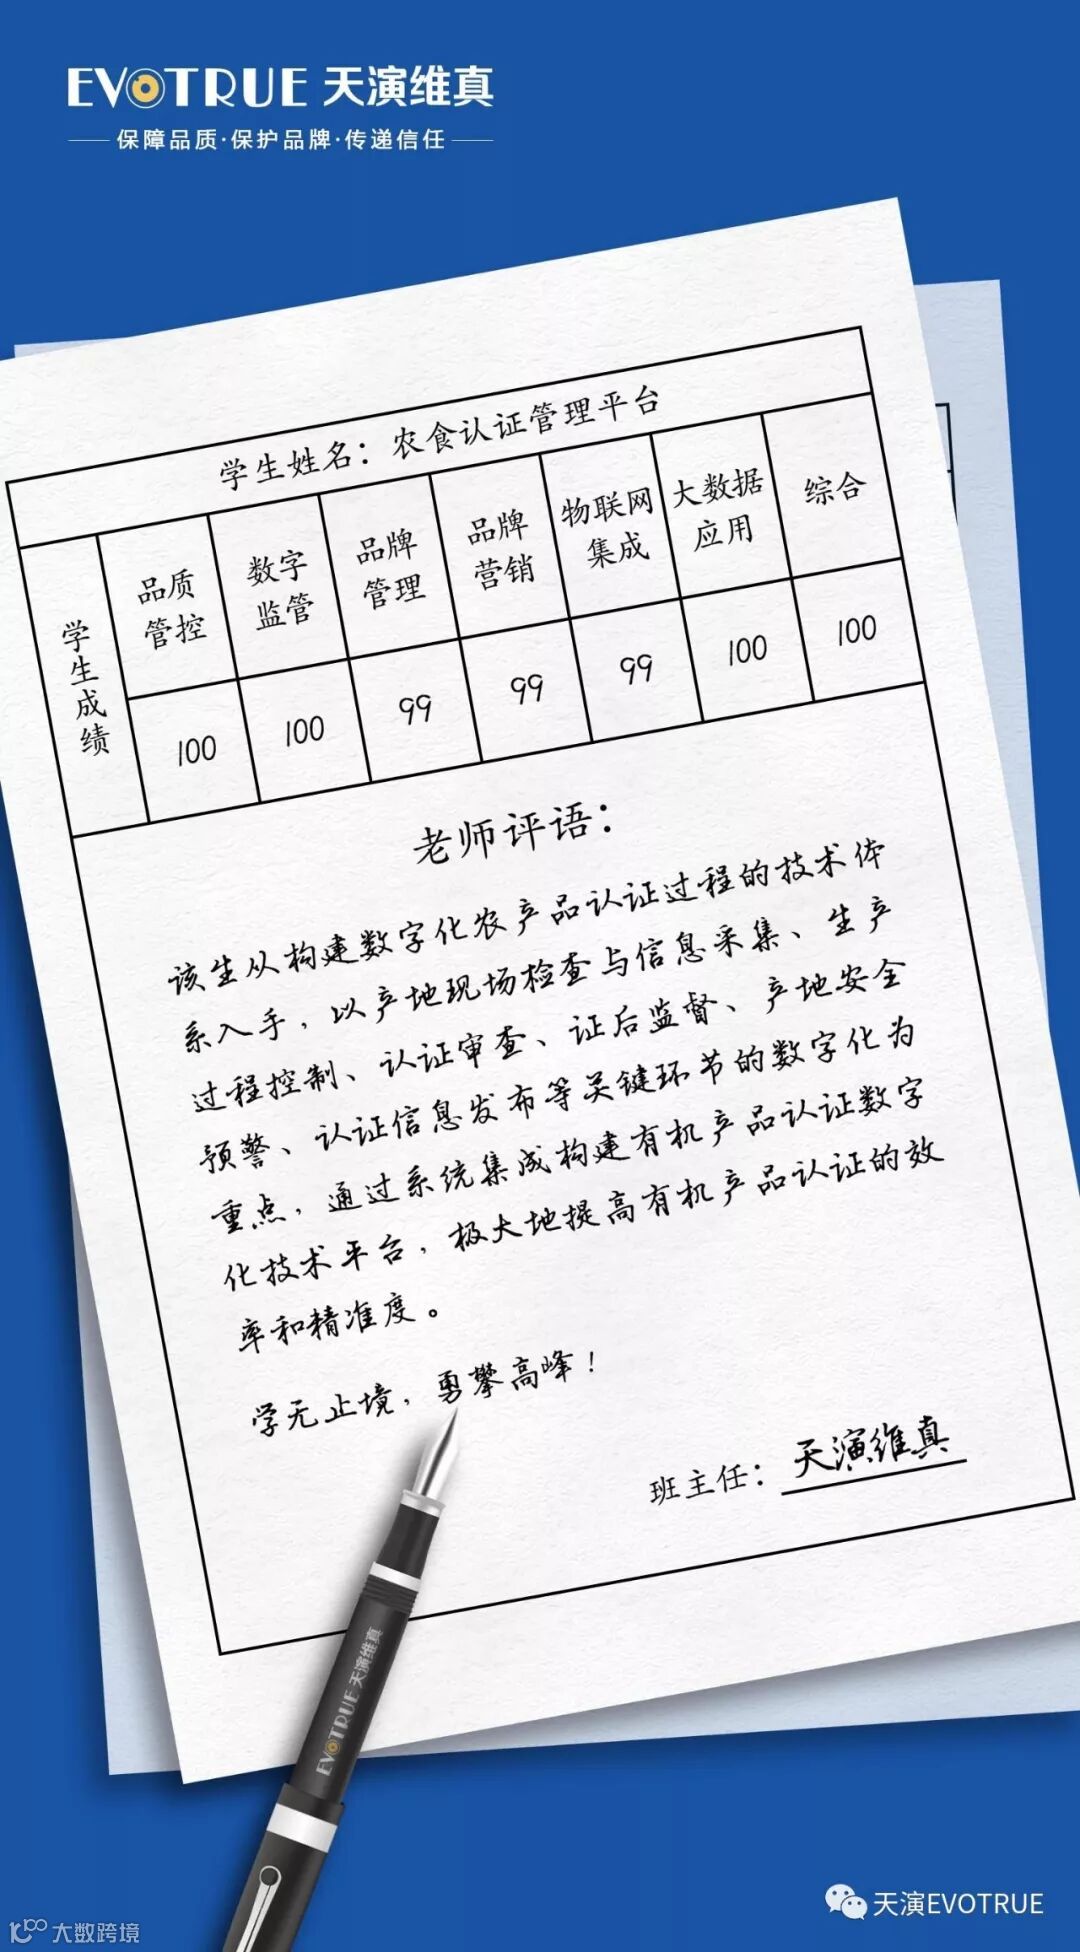 EVOTRUE 天演维真
保障品质·保护品牌·传递信任
学生姓名：农食认证管理平台
学生成绩
品质管控 数字监管 品牌管理 品牌营销 物联网集成 大数据应用 综合
100 100 99 99 99 100 100
老师评语：
该生从构建数字化农产品认证过程的技术体
系入手，以产地现场检查与信息采集、生产
过程控制、认证审查、证后监督、产地安全
预警、认证信息发布等关键环节的数字化为
重点，通过系统集成构建有机产品认证数字
化技术平台，极大地提高有机产品认证的效
率和精准度。
学无止境，勇攀高峰！
班主任：天演维真
EVOTRUE 天演维真
天演EVOTRUE
大数跨境